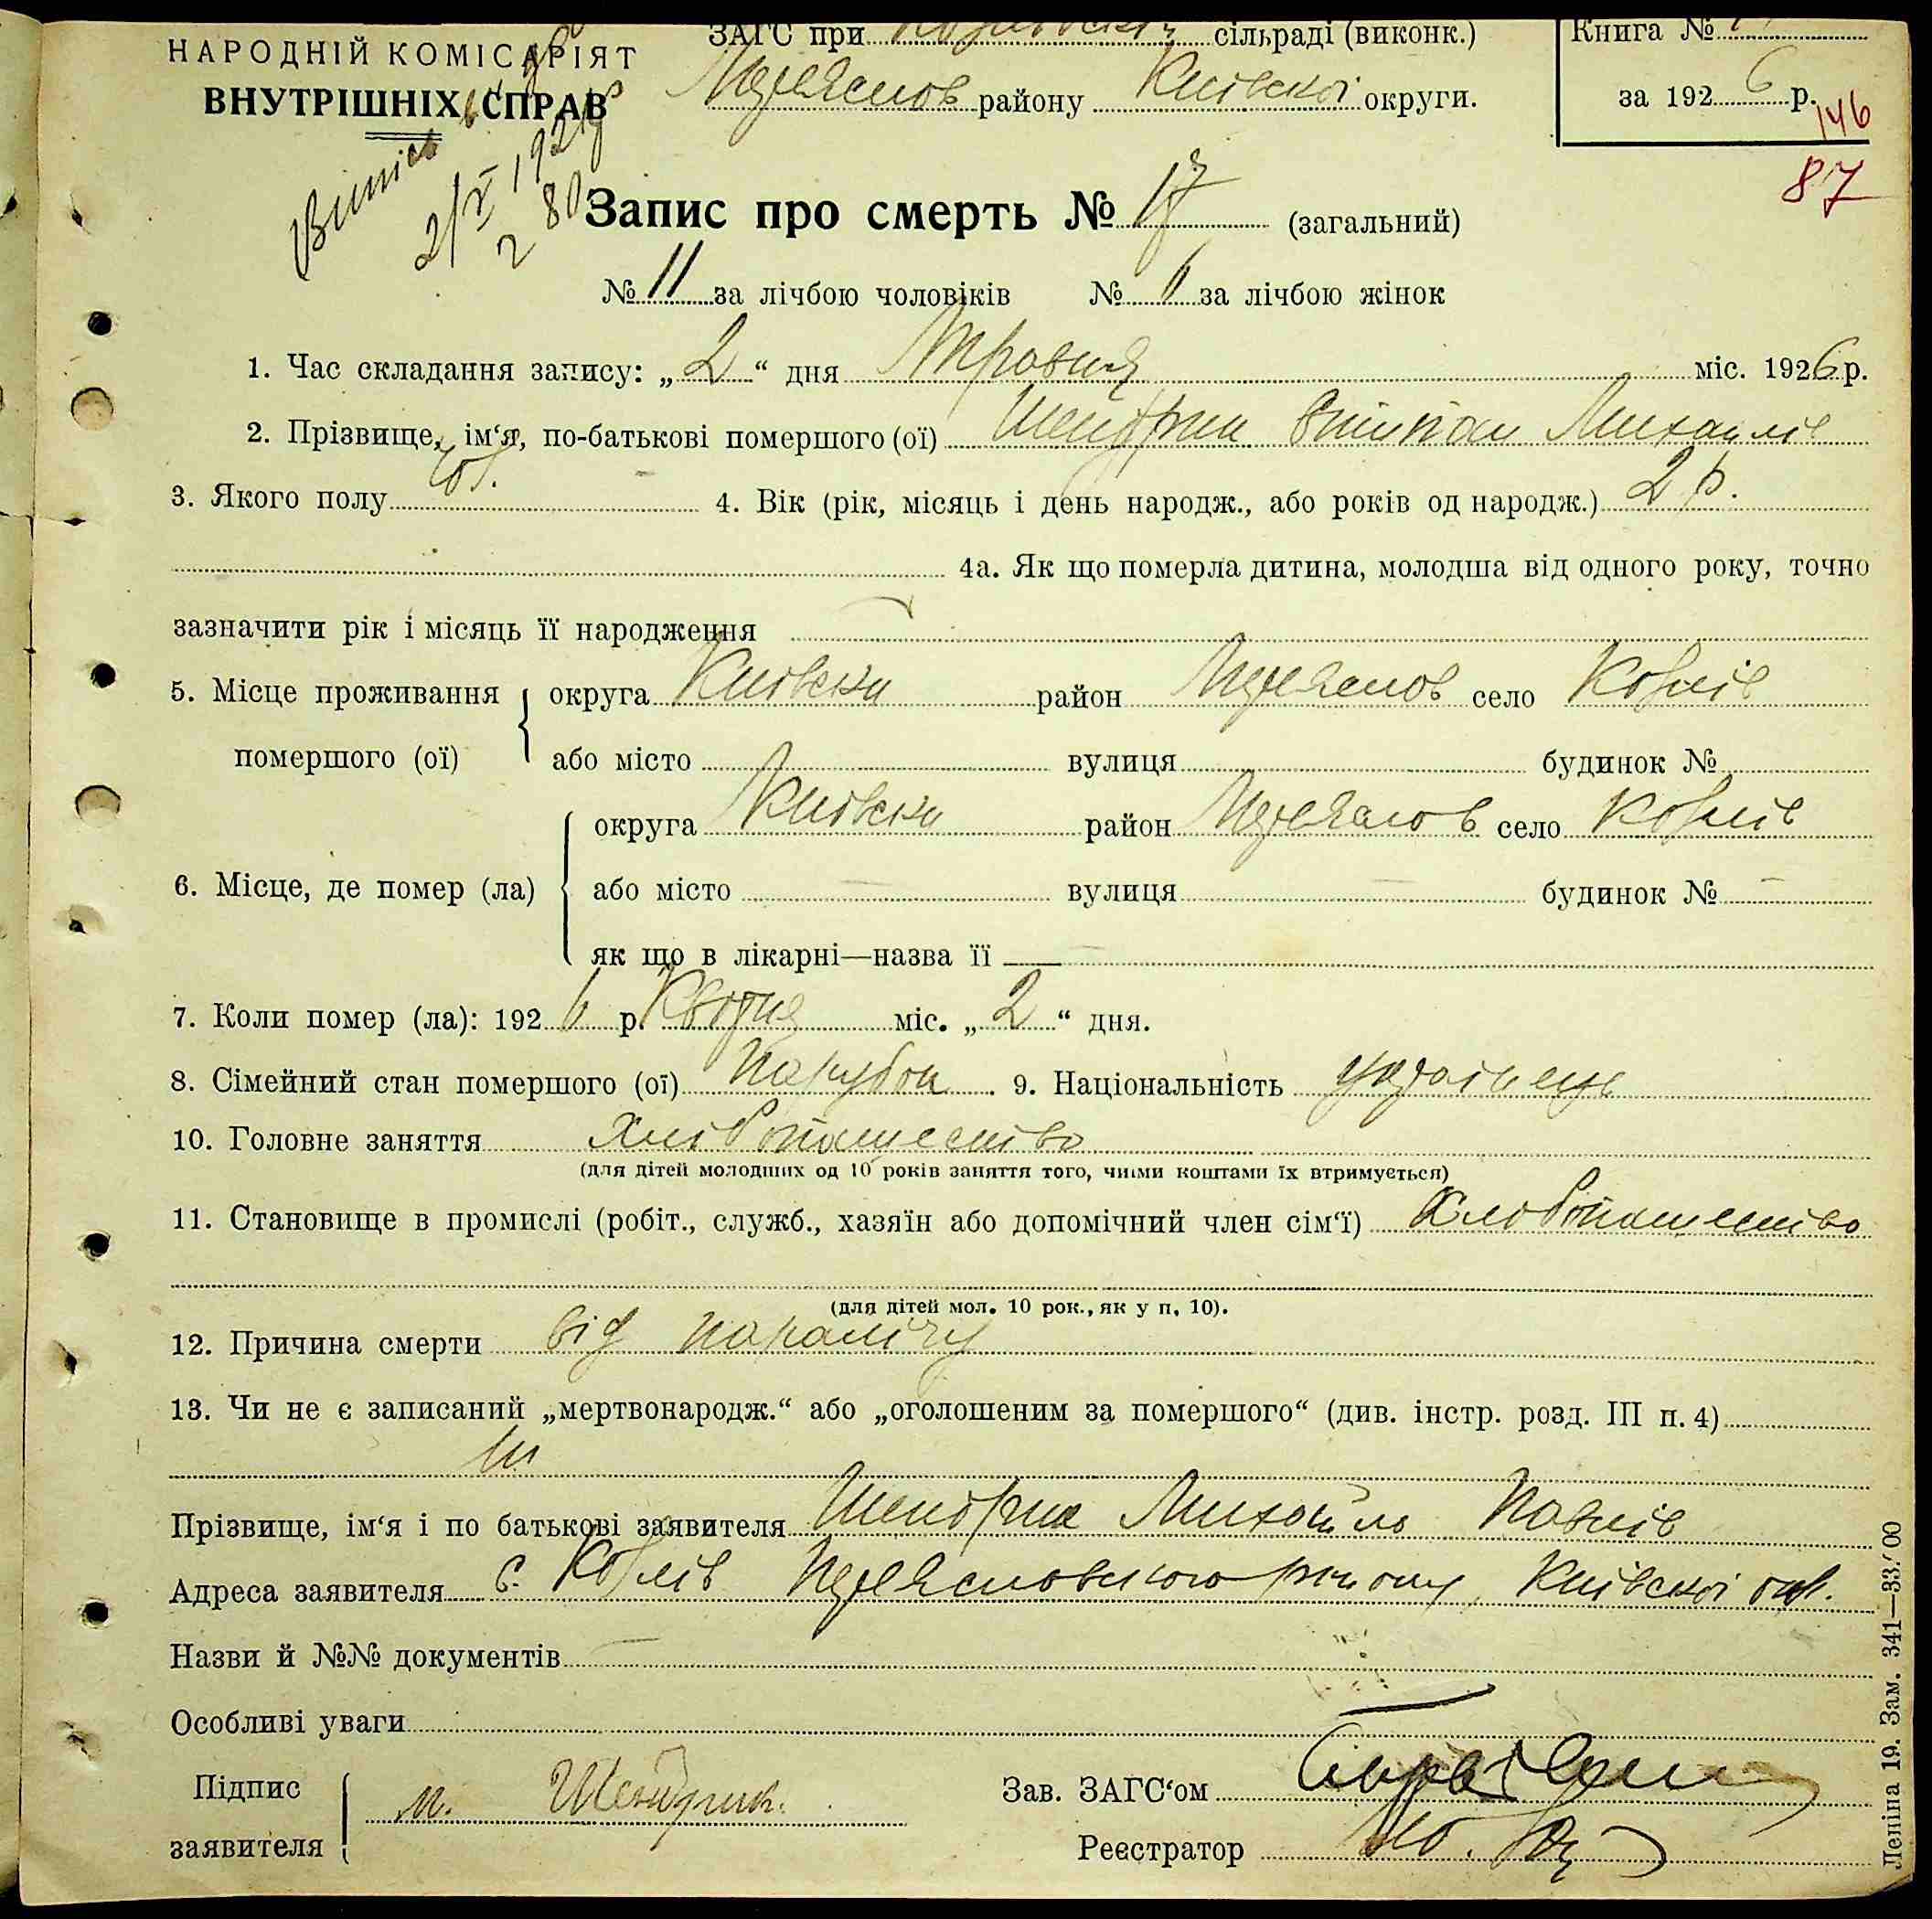 НАРОДНІЙ КОМІСАРІЯТ
ВНУТРІШНІХ СПРАВ
ЗАГС при сільраді (виконк.)
району Київської округи.
Книга №
за 1926 р.
146
87
2/V 192
Запис про смерть № 17 (загальний)
№ 11 за лічбою чоловіків № 6 за лічбою жінок
1. Час складання запису: „2“ дня Травня міс. 1926 р.
2. Прізвище, ім‘я, по-батькові помершого (ої) Шендрик Михайлів
3. Якого полу 4. Вік (рік, місяць і день народж., або років од народж.) 2 р.
4а. Як що померла дитина, молодша від одного року, точно
зазначити рік і місяць її народження
5. Місце проживання помершого (ої) округа Київска район село Козлів
або місто вулиця будинок №
6. Місце, де помер (ла) округа Київска район село Козлів
або місто вулиця будинок №
як що в лікарні—назва її
7. Коли помер (ла): 1926 р. міс. „2“ дня.
8. Сімейний стан помершого (ої) парубок 9. Національність українець
10. Головне заняття хлібопашество
(для дітей молодших од 10 років заняття того, чиїми коштами їх втримується)
11. Становище в промислі (робіт., служб., хазяїн або допомічний член сім‘ї) хлібопашество
(для дітей мол. 10 рок., як у п. 10).
12. Причина смерти від паралічу
13. Чи не є записаний „мертвонародж.“ або „оголошеним за помершого“ (див. інстр. розд. III п. 4)
ні
Прізвище, ім‘я і по батькові заявителя Шендрик Михайло Павлів
Адреса заявителя с. Козлів району, Київскої окр.
Назви й №№ документів
Особливі уваги
Підпис заявителя М. Шендрик.
Зав. ЗАГС‘ом
Реєстратор
Леніна 19. Зам. 341—33.